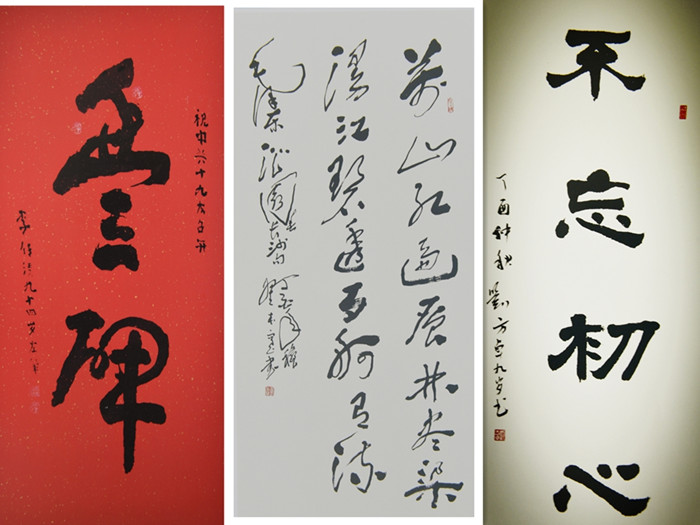 祝中共十九大召开
豐碑
九十四岁左笔
萬山红遍层林尽染
漫江碧透百舸争流
毛泽东沁园春长沙句
丁酉年
不忘初心
丁酉仲秋劉方卓九岁书